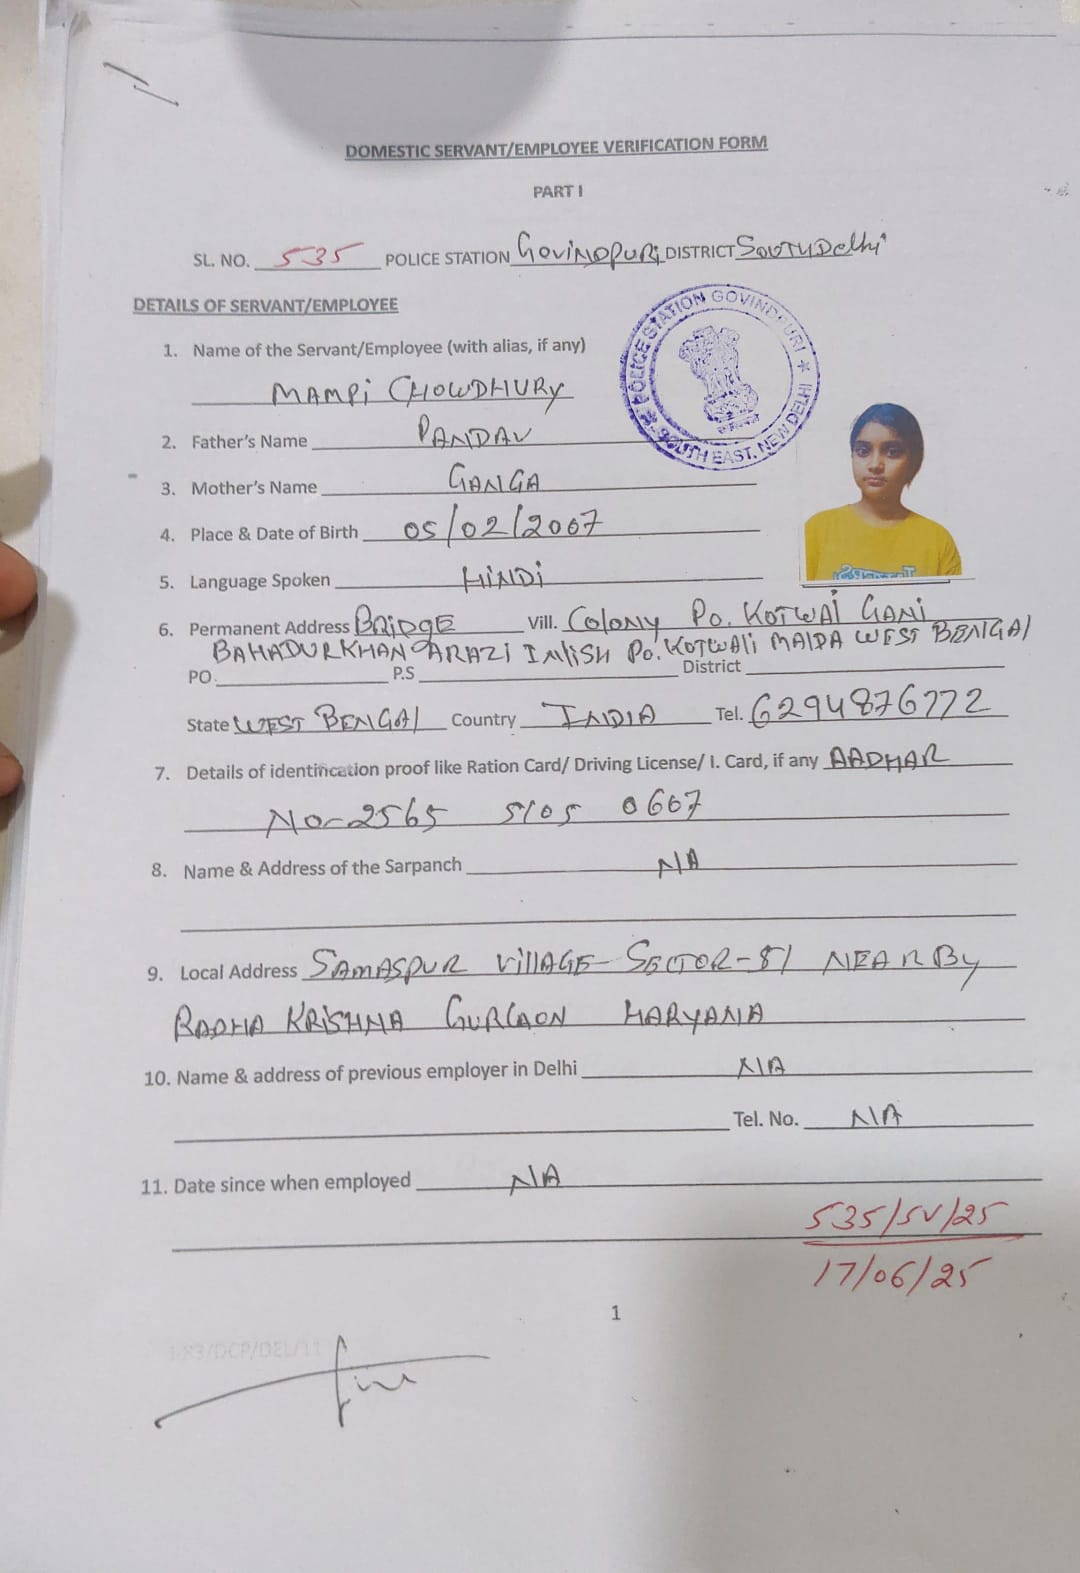 DOMESTIC SERVANT/EMPLOYEE VERIFICATION FORM
PART I
SL. NO. 535 POLICE STATION GOVINDPURI DISTRICT SOUTH Delhi
DETAILS OF SERVANT/EMPLOYEE
POLICE STATION GOVINDPURI
SOUTH EAST, NEW DELHI
1. Name of the Servant/Employee (with alias, if any)
MAMPI CHOWDHURY
2. Father's Name PANDAV
3. Mother's Name GANGA
4. Place & Date of Birth 05/02/2007
5. Language Spoken HINDI
6. Permanent Address BRIDGE Vill. COlONY PO. KOTWAI GANI
BAHADURKHAN ARAZI INlISH PO. KOTWAli MAlDA WEST BENGAl
PO. P.S District
State WEST BENGAl Country INDIA Tel. 6294876772
7. Details of identification proof like Ration Card/ Driving License/ I. Card, if any AADHAR
NO-2565 5105 0667
8. Name & Address of the Sarpanch N/A
9. Local Address SAMASPUR VillAGE- SECTOR-51 NEARBY
RADHA KRISHNA GURGAON HARYANA
10. Name & address of previous employer in Delhi N/A
Tel. No. N/A
11. Date since when employed N/A
535/SV/25
17/06/25
1